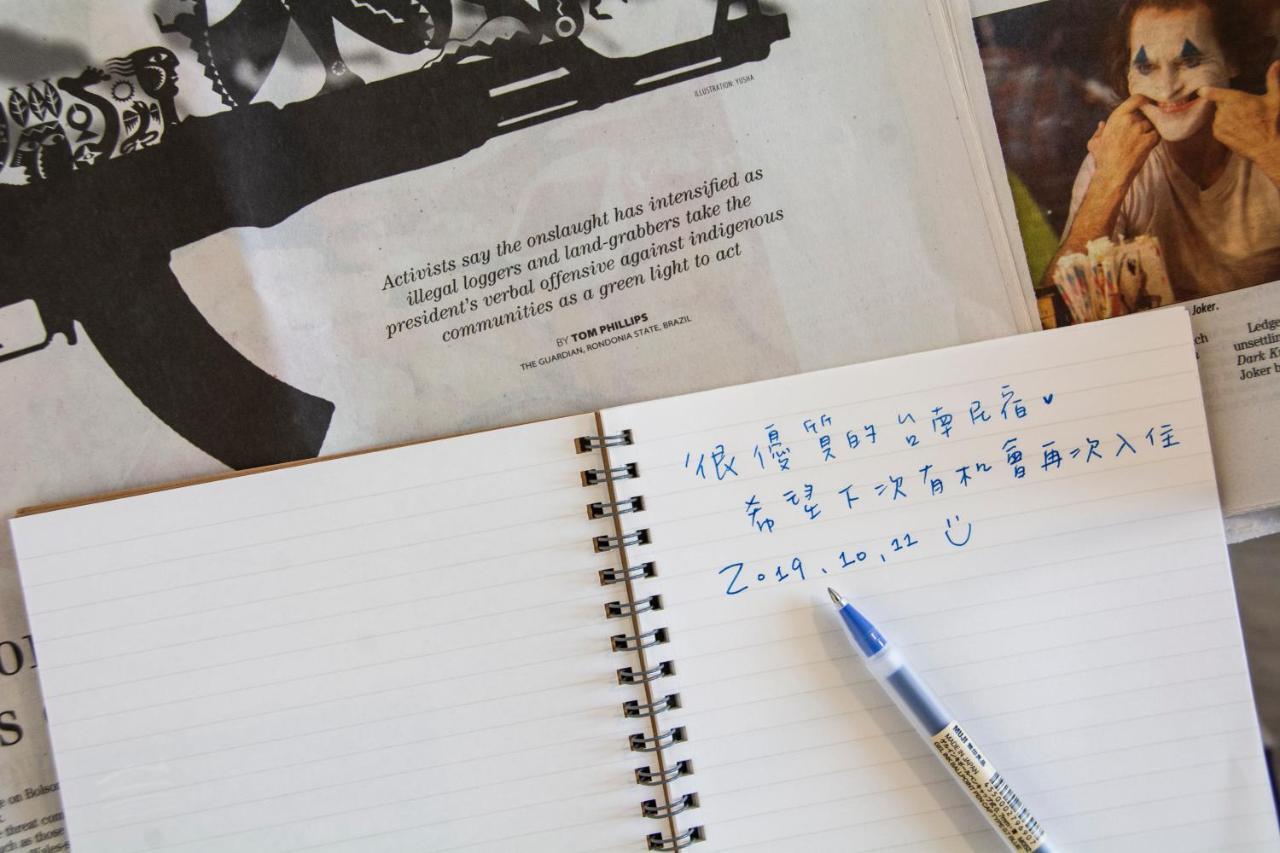 ILLUSTRATION: YUSHA
Activists say the onslaught has intensified as
illegal loggers and land-grabbers take the
president's verbal offensive against indigenous
communities as a green light to act
BY TOM PHILLIPS
THE GUARDIAN, RONDONIA STATE, BRAZIL
Joker.
Ledge
unsettli
Dark K
Joker b
很優質的台南民宿
希望下次有机會再次入住
2019.10.11
MUJI 無印良品
MADE IN JAPAN
e on Bolso
threat com
such as those